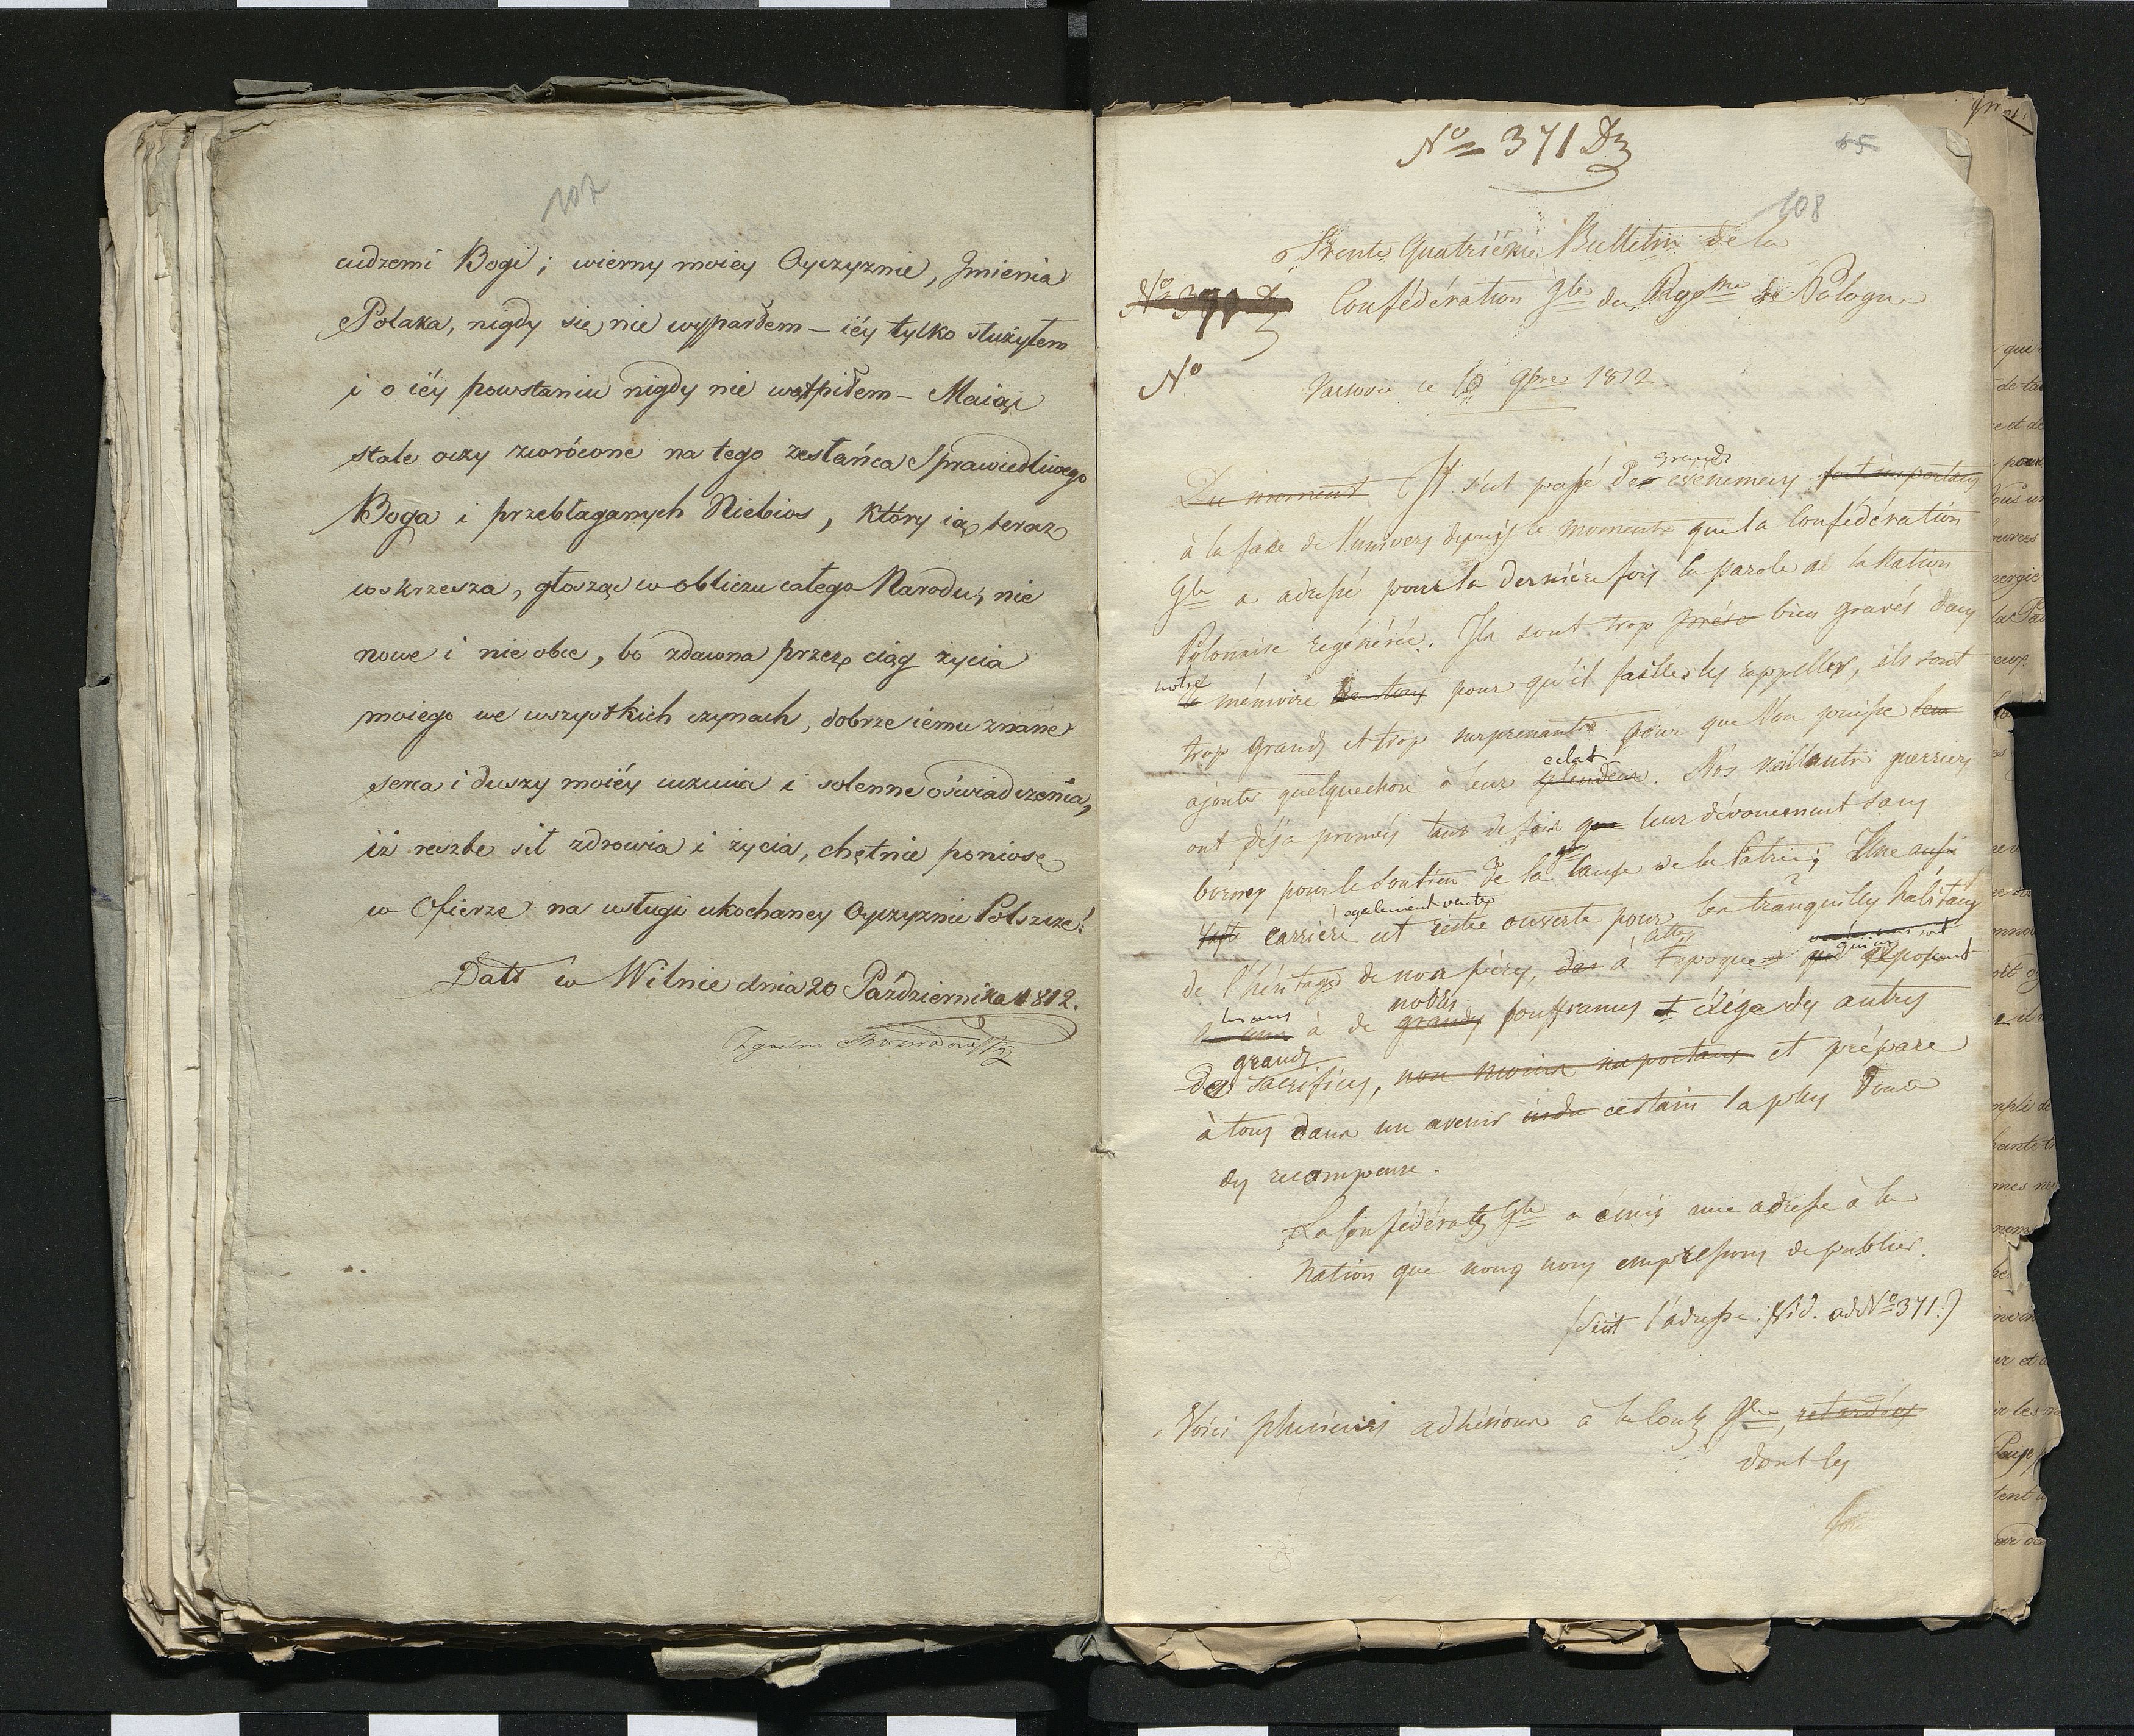 107
cudzemi Bogi; wierny moiey Oyczyznie, Jmienia
Polaka, nigdy się nie wyparłem – iéy tylko służyłem
i o iéy powstaniu nigdy nie wątpiłem – Maiąc
stale oczy zwrócone na tego zesłańca Sprawiedliwego
Boga i przebłaganych Niebios, który ią teraz
wskrzesza, głoszę w obliczu całego Narodu, nie
nowe i nie obce, bo zdawna przez ciąg życia
moiego we wszystkich czynach, dobrze iemu znane
serca i duszy moiéy uczucia i solenne oświadczenia,
iż resztę sił zdrowia i życia, chętnie poniosę
w Ofierze na usługi ukochaney Oyczyznie Polszcze!
Datt w Wilnie dnia 20 Października 1812.
No 371 Dz
65
108
Trente Quatrième Bulletin de la
No 371 Dz
Confédération Gle du Rgme de Pologne
No
Varsovie ce 10 9bre 1812
Du moment Il s'est passé de grands évenemens fort importans
à la face de l'univers depuis le moment que la Confédération
Gle a adressé pour la dernière fois la parole à la Nation
Polonaise regénérée. Ils sont trop bien gravés dans
notre mémoire de tous pour qu'il faille les rappeller, ils sont
trop grands et trop surprenants pour que l'on puisse
ajouter quelquechose à leur splendeur eclat. Nos vaillants guerriers
ont déja prouvés leur dévouement sans
bornes pour le soutien de la cause de la Patrie; Une aussi
vaste carrière est restée ouverte pour les tranquilles habitans
egalement vaste
de l'héritage de nos pères, à cette époque qui exposent
les uns à de grands nobles souffrances et exige des autres
des grands sacrifices, non moins importans et prépare
à tous dans un avenir certain la plus douce
des recompense.
La Confédératn Gle a émis une adresse à la
Nation que nous nous empressons de publier.
(Suit l'adresse. Vid. ad No 371.)
Voici plusieurs adhésions à la Conf. Gle, retardées
dont les